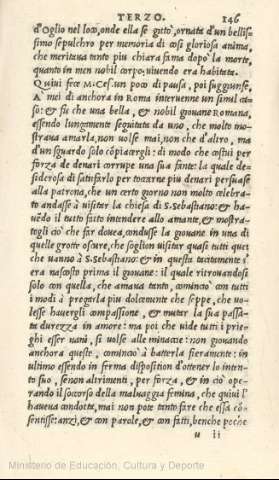 TERZO. 146
d'Oglio nel loco, onde ella se gittò, ornata d'un bellis-
simo sepulchro per memoria di cosi gloriosa anima,
che meritaua tanto piu chiara fama dopò la morte,
quanto in men nobil corpo uiuendo era habitata.
Quiui fece M. Ces. un poco di pausa, poi suggiunse,
A' miei di anchora in Roma interuenne un simil ca-
so: & fu che una bella, & nobil giouane Romana,
essendo lungamente seguitata da uno, che molto mo-
straua amarla, non uolse mai, non che d'altro, ma
d'un sguardo solo cōpiacergli: di modo che costui per
forza de denari corrupe una sua fante: la quale de-
siderosa di satisfarlo per toccarne piu denari persuase
alla patrona, che un certo giorno non molto celebra-
to andasse à uisitar la chiesa di S. Sebastiano: & ha-
uēdo il tutto fatto intendere allo amante, & mostra-
togli ciò che far douea, condusse la giouane in una di
quelle grotte oscure, che soglion uisitar quasi tutti quei
che uanno à S. Sebastiano: & in questa tacitamente s'
era nascosto prima il giouane: il quale ritrouandosi
solo con quella, che amaua tanto, cominciò con tutti
i modi à pregarla piu dolcemente che seppe, che uo-
lesse hauergli compassione, & mutar la sua passa-
ta durezza in amore: ma poi che uide tutti i prie-
ghi esser uani, si uolse alle minacce: non giouando
anchora queste, cominciò à batterla fieramente: in
ultimo essendo in ferma disposition d'ottener lo inten-
to suo, se non altrimenti, per forza, & in ciò ope-
rando il soccorso della maluaggia femina, che quiui l'
haueua condotta, mai non potè tanto fare che essa cō-
sentisse: anzi, & con parole, & con fatti, benche poche
u ii
Ministerio de Educación, Cultura y Deporte